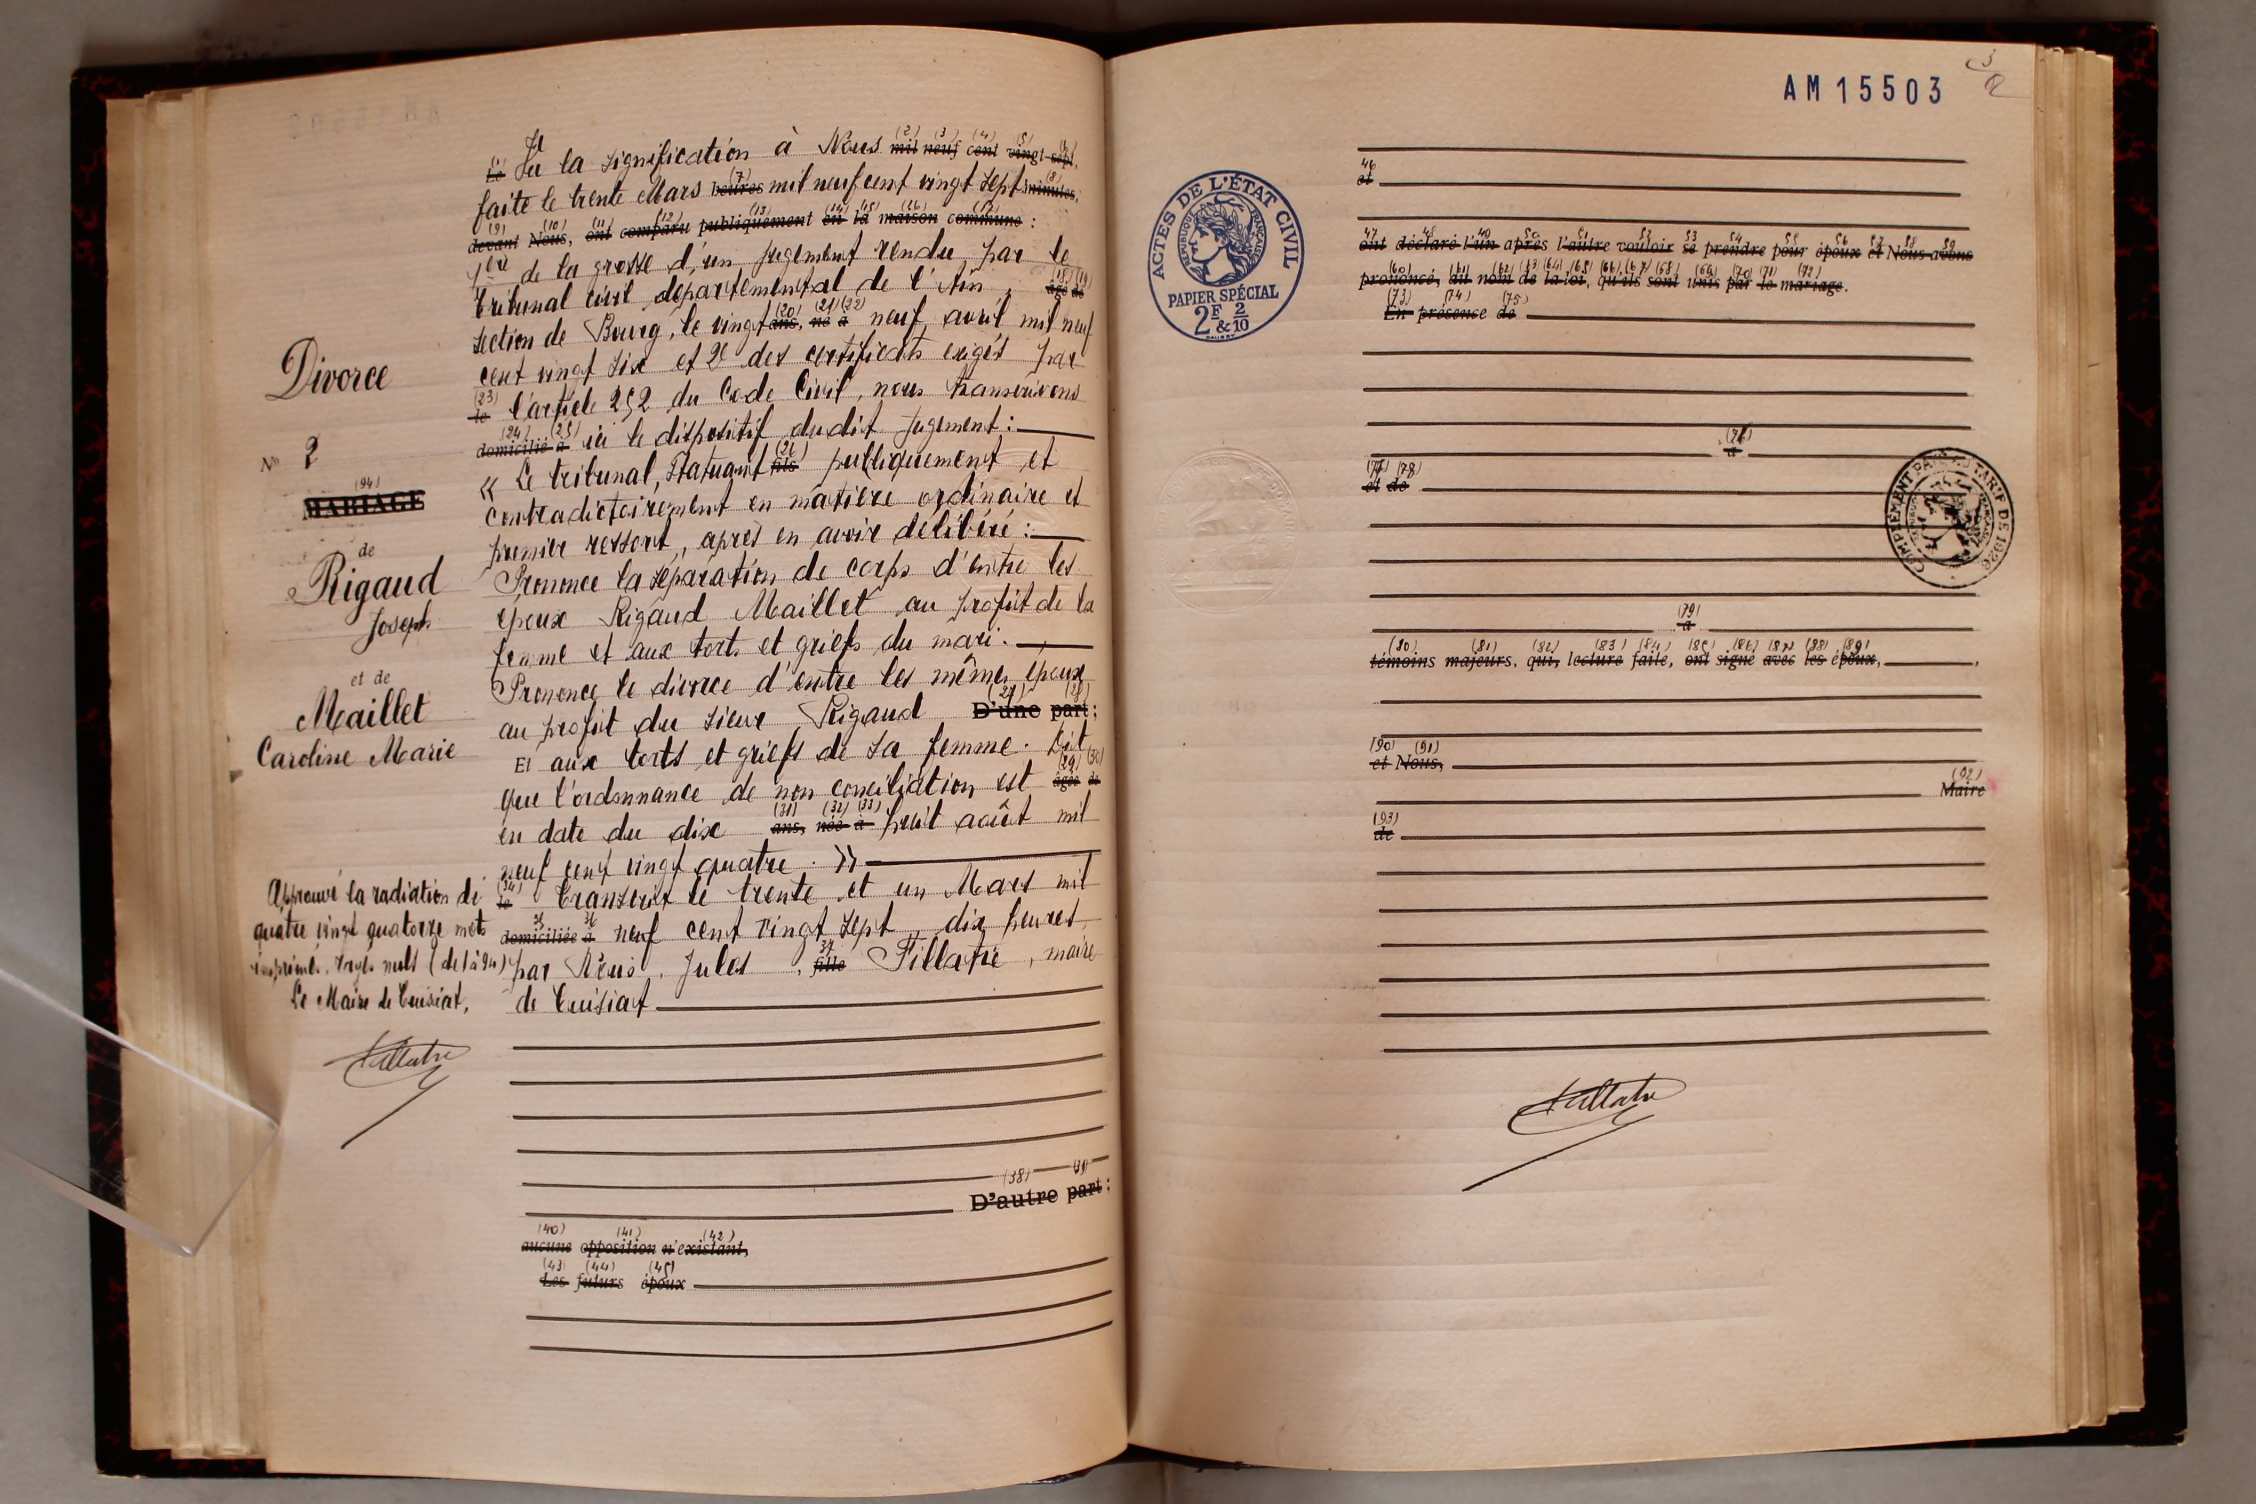 Divorce
N° 2
(94)
MARIAGE
de
Rigaud
Joseph
et de
Maillet
Caroline Marie
Approuvé la radiation de
quatre vingt quatorze mots
imprimés rayés nuls (de 1 à 94)
Le Maire de Cuisiat,
Fillatre
(1) (2) (3) (4) (5) (6)
Le Vu la signification à Nous mil neuf cent vingt-sept,
faite le trente Mars heures (7) mil neuf cent vingt sept minutes, (8)
(9) (10) (11) (12) (13) (14) (15) (16) (17)
devant Nous, ont comparu publiquement en la maison commune :
1ere de la grosse d'un jugement rendu par le
tribunal civil départemental de l'Ain, (18) (19) âgé de
section de Bourg, le vingt (20) ans, (21) né (22) à neuf avril mil neuf
cent vingt six et 2° des certificats exigés par
(23) le l'article 252 du Code Civil, nous transcrivons
(24) (25) domicilié à ici le dispositif dudit jugement :
« Le tribunal, Statuant (26) fils publiquement et
contradictoirement en matière ordinaire et
premier ressort, après en avoir délibéré :
Prononce la séparation de corps d'entre les
époux Rigaud Maillet au profit de la
femme et aux torts et griefs du mari.
Prononce le divorce d'entre les mêmes époux
au profit du sieur Rigaud (27) (28) D'une part ;
Et aux torts et griefs de sa femme. Dit
que l'ordonnance de non conciliation est (29) (30) âgée de
en date du dix (31) ans, (32) née (33) à huit août mil
neuf cent vingt quatre. »
(34) le Transcrit le trente et un Mars mil
35 36 domiciliée à neuf cent vingt sept, dix heures
par Nous, Jules, 37 fille Fillatre, maire
de Cuisiat
(38) (39)
D'autre part :
(40) (41) (42)
aucune opposition n'existant,
(43) (44) (45)
Les futurs époux
AM 15503
ACTES DE L'ÉTAT CIVIL
RÉPUBLIQUE FRANÇAISE
PAPIER SPÉCIAL
2F 2/10
&
COMPLÉMENT PAYÉ AU TARIF DE 1926
46
et
47 48 49 50 51 52 53 54 55 56 57 58 59
ont déclaré l'un après l'autre vouloir se prendre pour époux et Nous avons
(60) (61) (62) (63) (64) (65) (66) (67) (68) (69) (70) (71) (72)
prononcé, au nom de la loi, qu'ils sont unis par le mariage.
(73) (74) (75)
En présence de
(76)
à
(77) (78)
et de
(79)
à
(80) (81) (82) (83) (84) (85) (86) (87) (88) (89)
témoins majeurs, qui, lecture faite, ont signé avec les époux,
(90) (91)
et Nous,
(92)
Maire
(93)
de
Fillatre